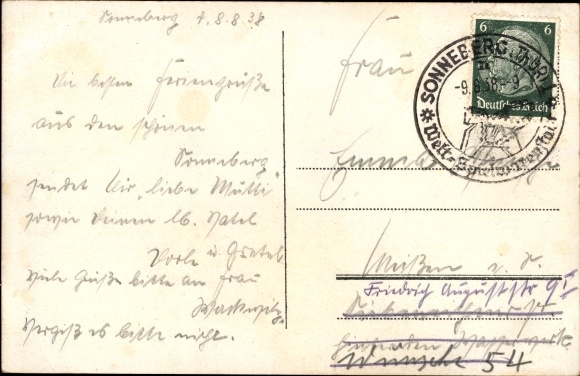 Sonneberg d. 8.8.38
Die besten Feriengrüße
aus dem schönen
Sonneberg
sendet Dir, liebe Mutti
sowie deinem lb. Vatel
Dorle u. Gretel
Viele Grüße bitte an Frau
Vergiß es bitte nicht.
6 6
Deutsches Reich
SONNEBERG (THÜR)
-9.8.38.-9
Welt-Spielwarenstadt
Frau
Emmy
Meißen a. E.
Friedrich Auguststr 9 I
54